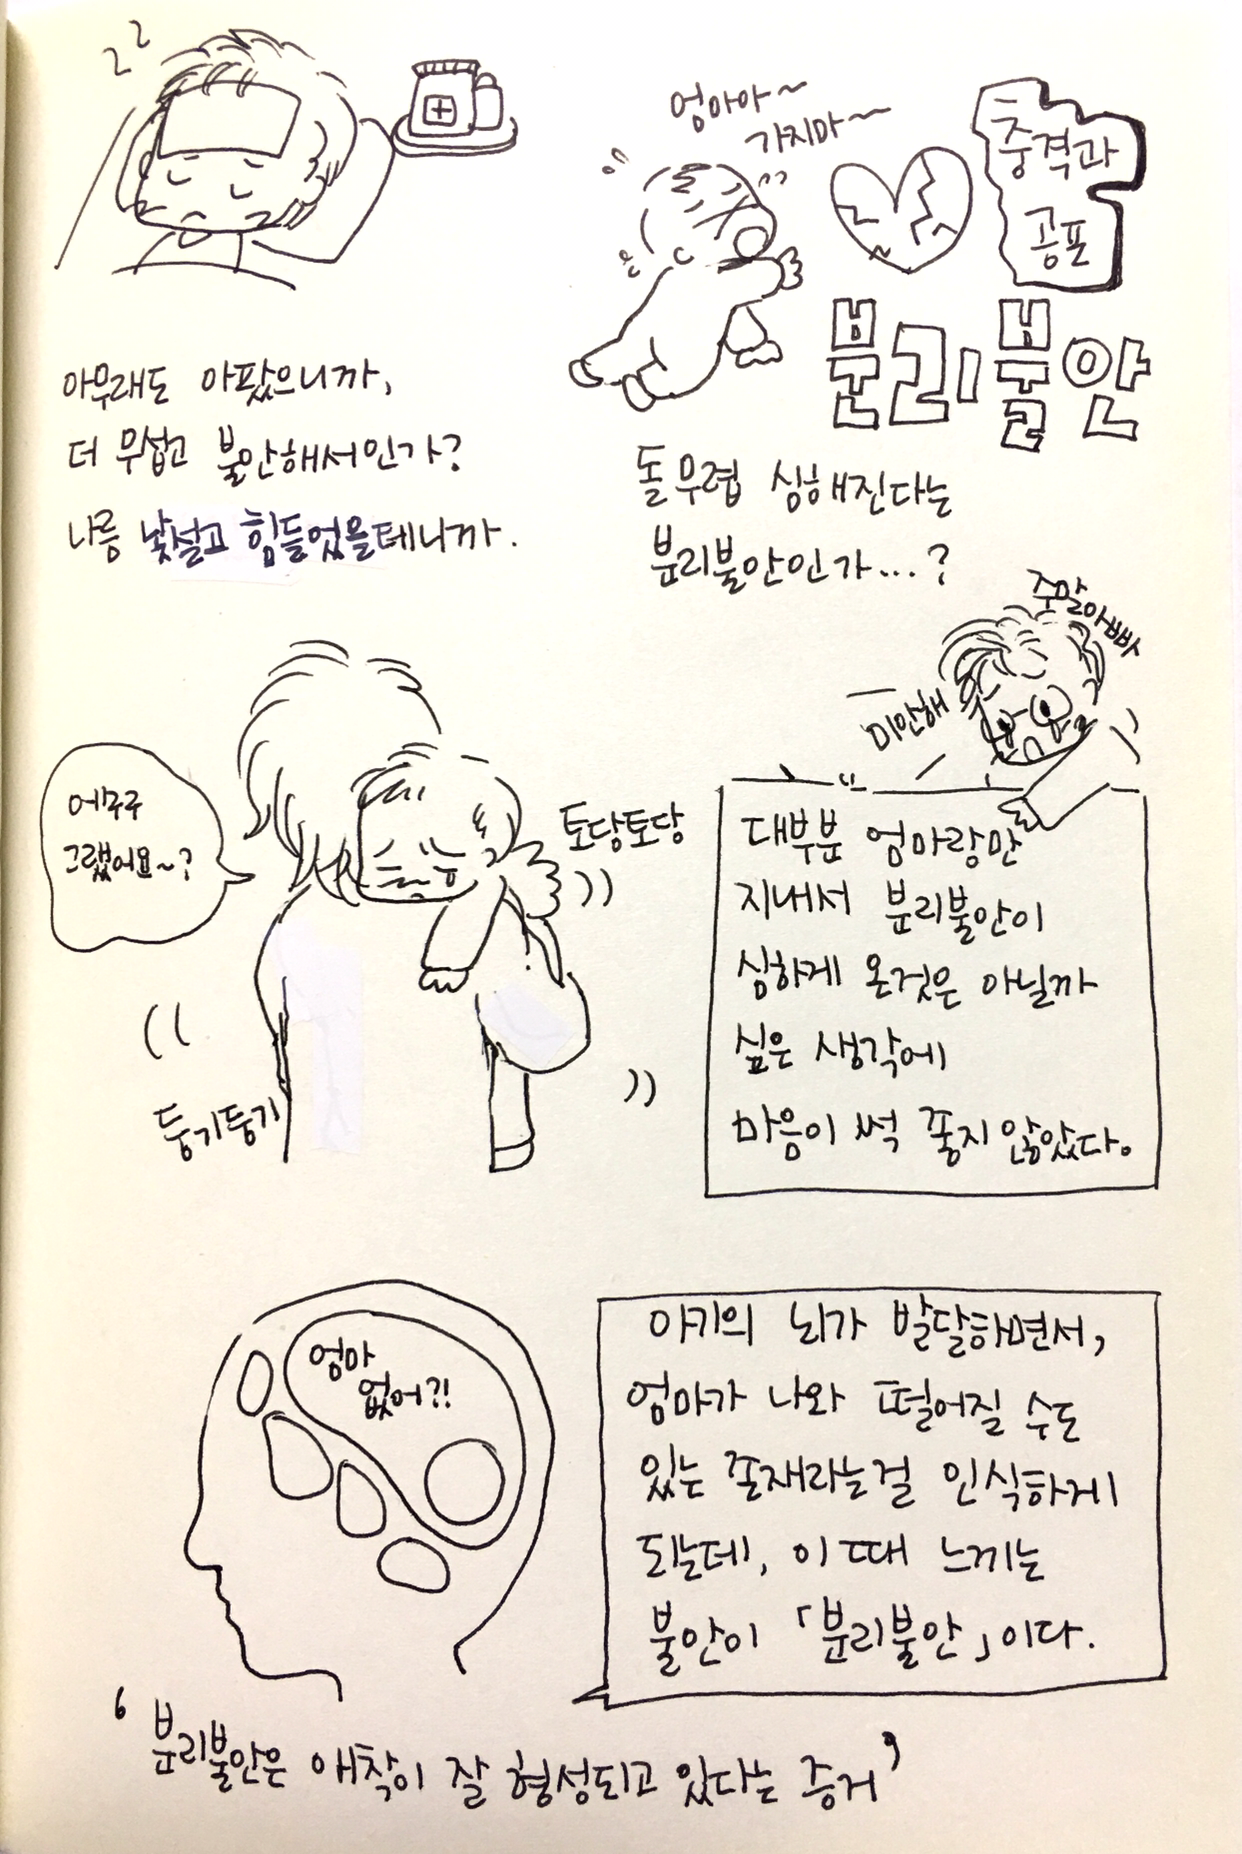 zz
아무래도 아팠으니까,
더 무섭고 불안해서인가?
나름 낯설고 힘들었을테니까.
엄마아~
가지마~
충격과
공포
분리불안
돌무렵 심해진다는
분리불안인가...?
에구구
그랬어요~?
토당토당
둥기둥기
주말아빠
미안해
대부분 엄마랑만
지내서 분리불안이
심하게 온것은 아닐까
싶은 생각에
마음이 썩 좋지 않았다.
엄마
없어?!
아기의 뇌가 발달하면서,
엄마가 나와 떨어질 수도
있는 존재라는걸 인식하게
되는데, 이 때 느끼는
불안이 「분리불안」이다.
‘분리불안은 애착이 잘 형성되고 있다는 증거’